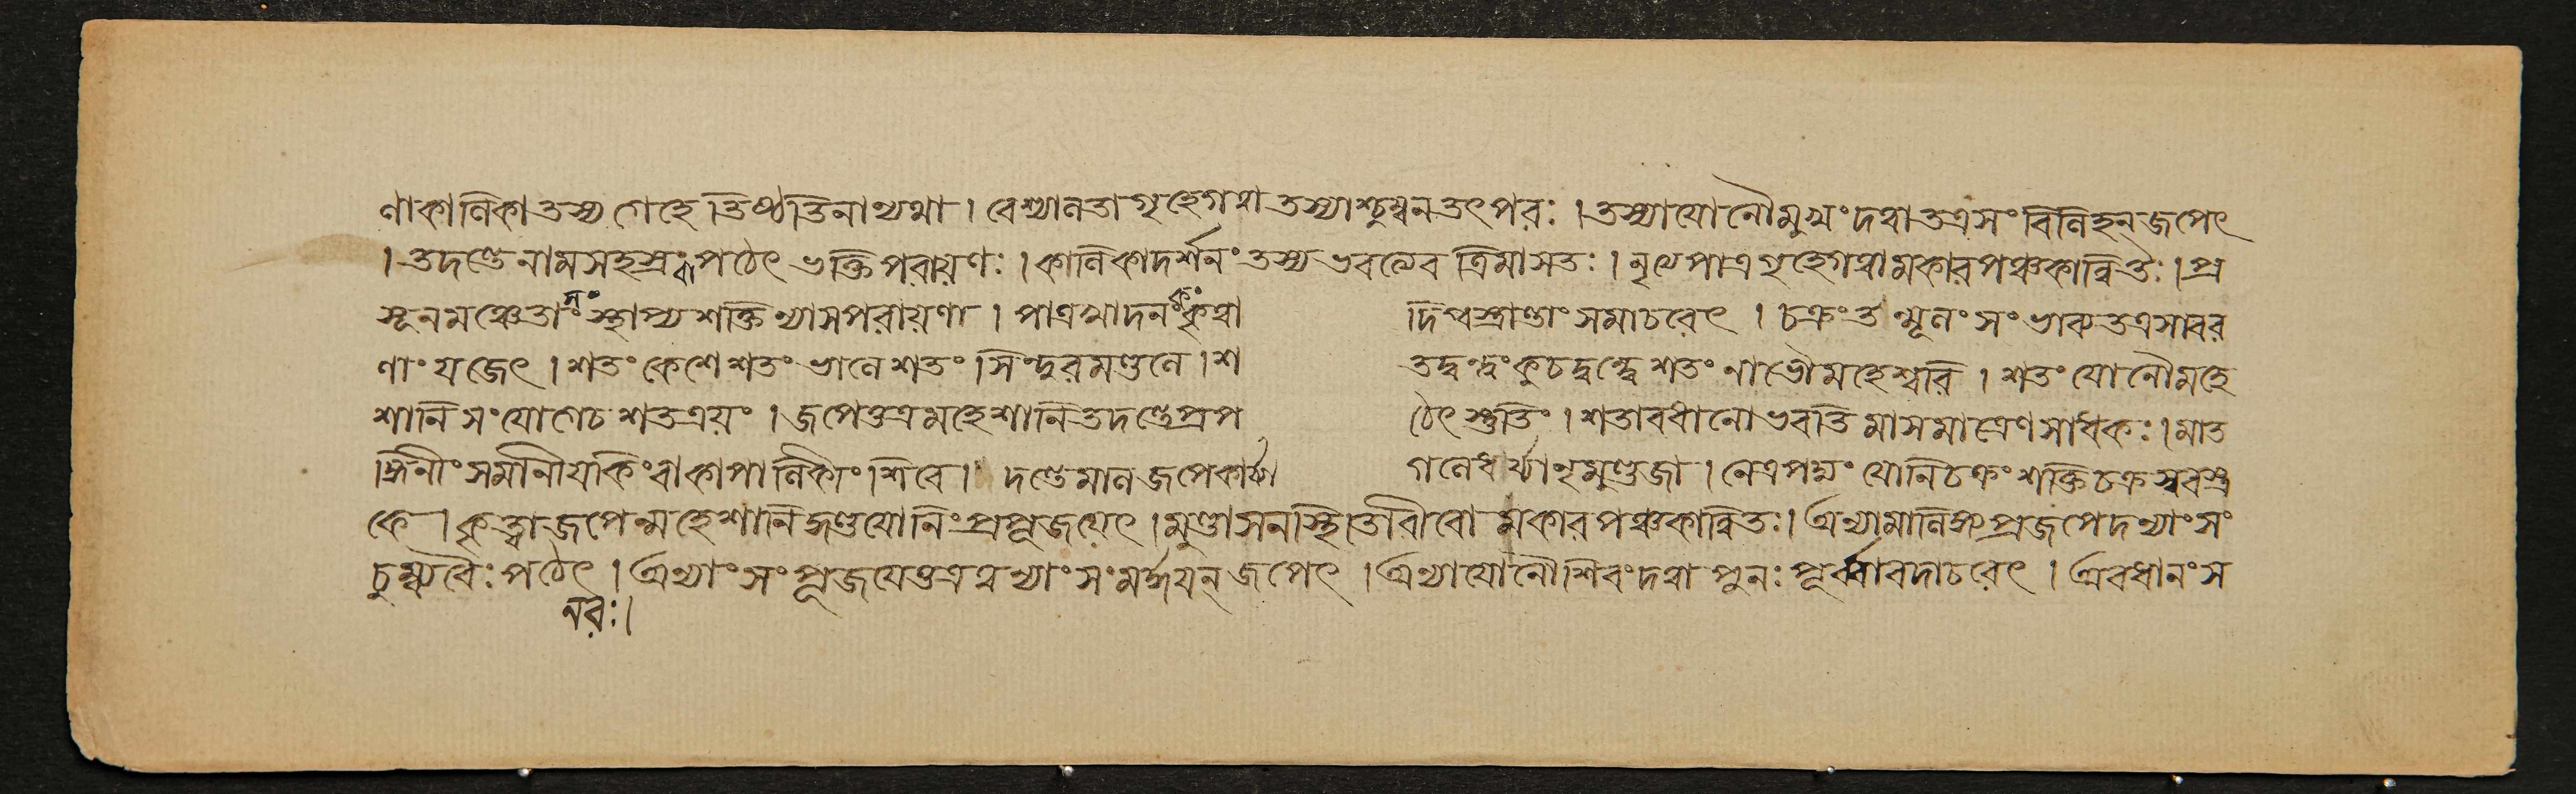 ণাকালিকাতস্য গেহে তিষ্ঠতিনান্যথা । বেশ্যালতাগৃহেগত্বা তস্যাশ্চুম্বনতৎপরঃ । তস্যাযোনৌমুখংদত্বাতত্রসংবিলিহন্ জপেৎ
। তদন্তেনামসহস্রংবাপঠেৎ ভক্তিপরায়ণঃ । কালিকাদর্শনংতস্য ভবত্যেব ত্রিমাসতঃ । নৃত্যেপাত্রগৃহেগত্বামকারপঞ্চকান্বিতৈঃ । প্র
সূনমঞ্চেতাং সংস্থাপ্য শক্তিন্যাসপরায়ণা । পাত্রাসাদনকংকৃত্বা দিগ্বস্ত্রাণ্ডাংসমাচরেৎ । চক্রংতন্মূলংসংভাব্যতত্রসাবর
ণাং যজেৎ । শতংকেশে শতংভালে শতং সিন্দুরমণ্ডলে । শ তদ্বন্দ্বংকুচদ্বন্দ্বে শতংনাভৌমহেশ্বরি । শতংযোনৌমহে
শানি সংযোগেচ শতত্রয়ং । জপেত্তত্রমহেশানিতদন্তেপ্রপ ঠেৎ স্তুতিং । শতাবধানোভবতিমাসমাত্রেণসাধকঃ । মাত
ঙ্গিনীংসমানীয়কিংবাকাপালিকীং শিবে । দন্তেমালাজপেকার্য্যা গলেধর্য্যানৃমুণ্ডজা । নেত্রপদ্মং যোনিচক্রং শক্তিচক্রস্ববক্ত্র
কে । কৃত্ত্বাজপেন্মহেশানিমুণ্ডযোনিংপ্রপূজয়েৎ । মুণ্ডাসনস্থিতবীরো মকারপঞ্চকান্বিতঃ । অন্যামালিঙ্গ্যপ্রজপেদন্যাংসং
চুম্ব্যবৈঃপঠেৎ । অন্যাংসংপূজয়েত্তত্রত্বন্যাংসংমর্দ্দয়ন্ জপেৎ । অন্যাযোনৌশিবংদত্বা পুনঃপূর্ব্ববদাচরেৎ । অবধানংস
নরঃ ।